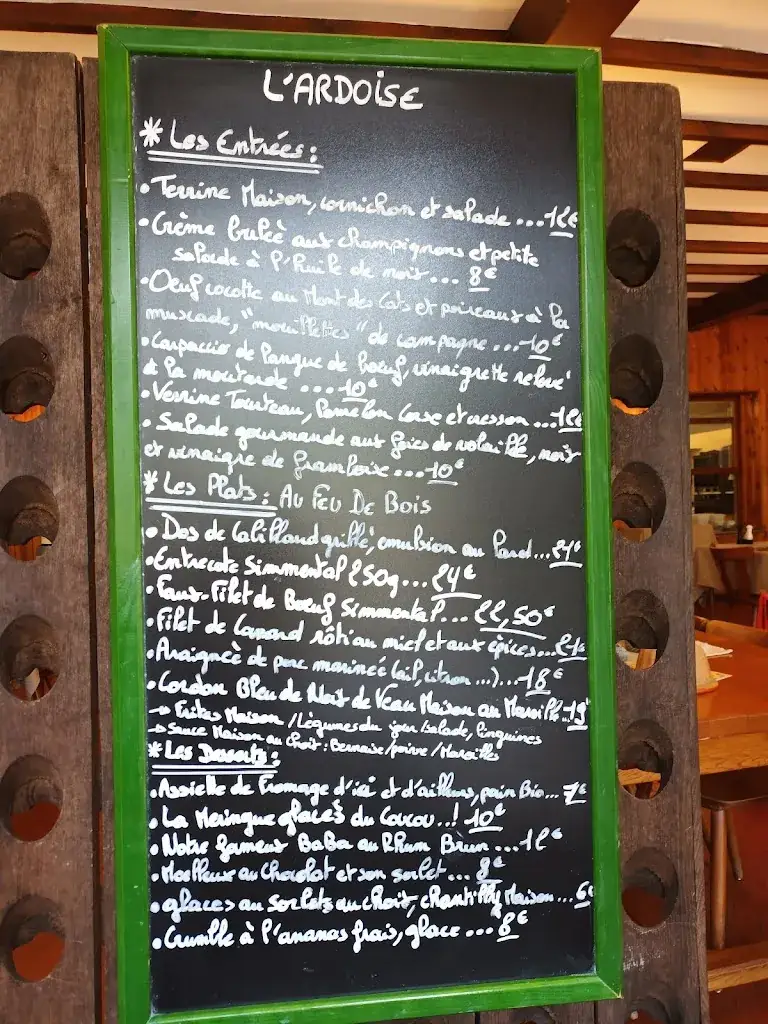 L'ARDOISE
* Les Entrées :
• Terrine Maison, cornichon et salade ... 12€
• Crème brulée aux champignons et petite
salade à l'huile de noix ... 8€
• Oeuf cocotte au Mont des Cats et poireaux à la
muscade, "mouillettes" de campagne ... 10€
• Carpaccio de langue de boeuf, vinaigrette relevé
à la moutarde .... 10€
• Verrine Tourteau, Pomelon Corse et cresson ... 12€
• Salade gourmande aux foies de volaille, noix
et vinaigre de framboise ... 10€
* Les Plats : AU FEU DE BOIS
• Dos de Cabillaud grillé, emulsion au Persil... 21€
• Entrecote Simmental 250g ... 24€
• Faux-Filet de Boeuf Simmental ... 22,50€
• Filet de Canard rôti au miel et aux épices ... 21€
• Araignée de porc marinée (ail, citron ...) ... 18€
• Cordon Bleu de Noix de Veau Maison au Maroille .. 19€
→ Frites Maison / Légumes du jour / salade, linguines
→ Sauce Maison au choix : Bernaise / poivre / Maroilles
* Les Desserts :
• Assiette de Fromage d'ici et d'ailleurs, pain Bio... 7€
• La Meringue glacés du Coucou ..! 10€
• Notre fameux BaBa au Rhum Brun ... 12€
• Moelleux au Chocolat et son sorbet ... 8€
• glaces au sorbets au choix, chantilly Maison ... 6€
• Crumble à l'ananas frais, glace .... 8€